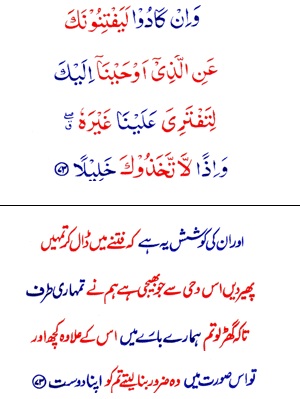 وَاِنْ كَادُوْا لَيَفْتِنُوْنَكَ
عَنِ الَّذِيْۤ اَوْحَيْنَاۤ اِلَيْكَ
لِتَفْتَرِيَ عَلَيْنَا غَيْرَهٗ ۖۗ
وَاِذًا لَّاتَّخَذُوْكَ خَلِيْلًا ﴿۷۳﴾
اور ان کی کوشش یہ ہے کہ فتنے میں ڈال کر تمہیں
پھیر دیں اس وحی سے جو بھیجی ہے ہم نے تمہاری طرف
تاکہ گھڑ لو تم ہمارے بارے میں اس کے علاوہ کچھ اور
تو اس صورت میں وہ ضرور بنا لیتے تم کو اپنا دوست ﴿۷۳﴾